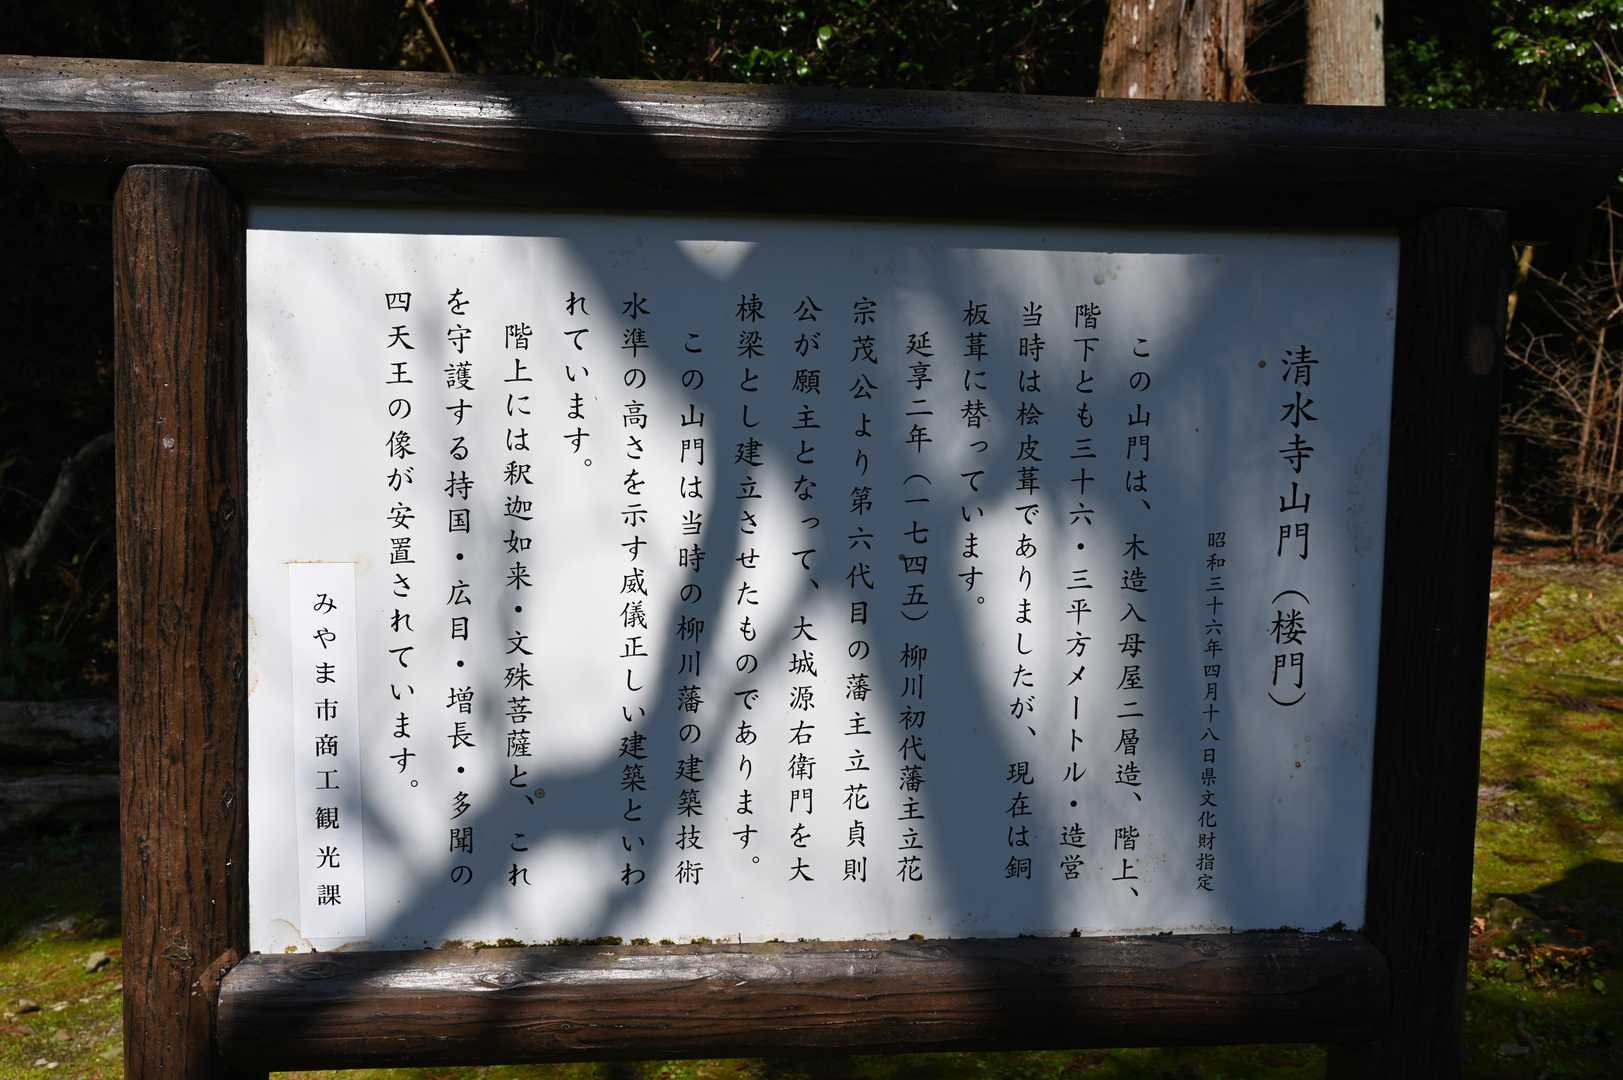 清水寺山門（楼門）
昭和三十六年四月十八日県文化財指定
この山門は、木造入母屋二層造、階上、
階下とも三十六・三平方メートル・造営
当時は桧皮葺でありましたが、現在は銅
板葺に替っています。
延享二年（一七四五）柳川初代藩主立花
宗茂公より第六代目の藩主立花貞則
公が願主となって、大城源右衛門を大
棟梁とし建立させたものであります。
この山門は当時の柳川藩の建築技術
水準の高さを示す威儀正しい建築といわ
れています。
階上には釈迦如来・文殊菩薩と、これ
を守護する持国・広目・増長・多聞の
四天王の像が安置されています。
みやま市商工観光課